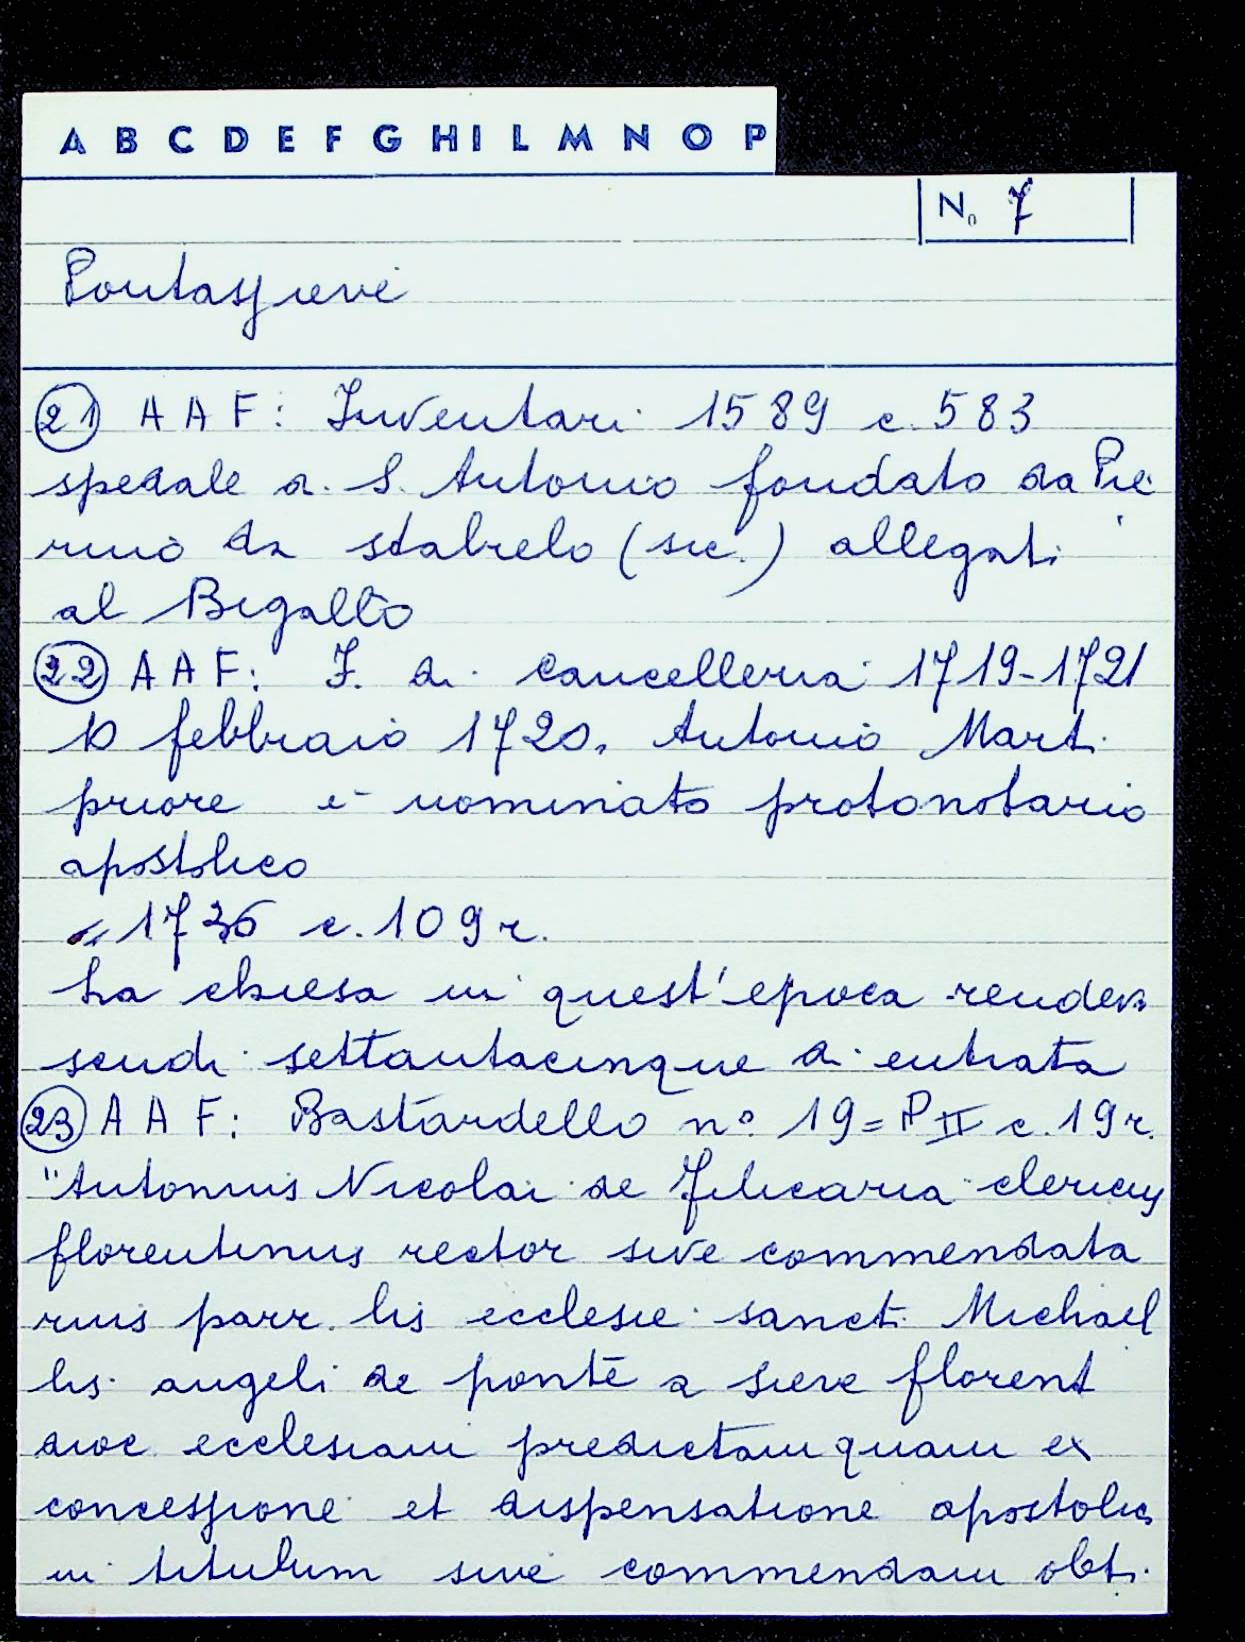 A B C D E F G H I L M N O P
N. 7
Pontassieve
21 A A F: Inventari 1589 c. 583
spedale di S. Antonio fondato da Pie
rino da stabielo (sic.) allegati
al Bigallo
22 A A F: F. di cancelleria 1719-1721
10 febbraio 1720. Antonio Marti
priore è nominato protonotario
apostolico
" 1736 c. 109 r.
La chiesa in quest'epoca rendeva
scudi settantacinque di entrata
23 A A F: Bastardello n° 19 = P II c. 19 r.
"Antonius Nicolai de Filicaria clericus
florentinus rector sive commendata
rius parr. lis ecclesie sancti Michael
lis angeli de ponte a sieve florent
dioc ecclesiam predictam quam ex
concessione et dispensatione apostolica
in titulum sive commendam obti